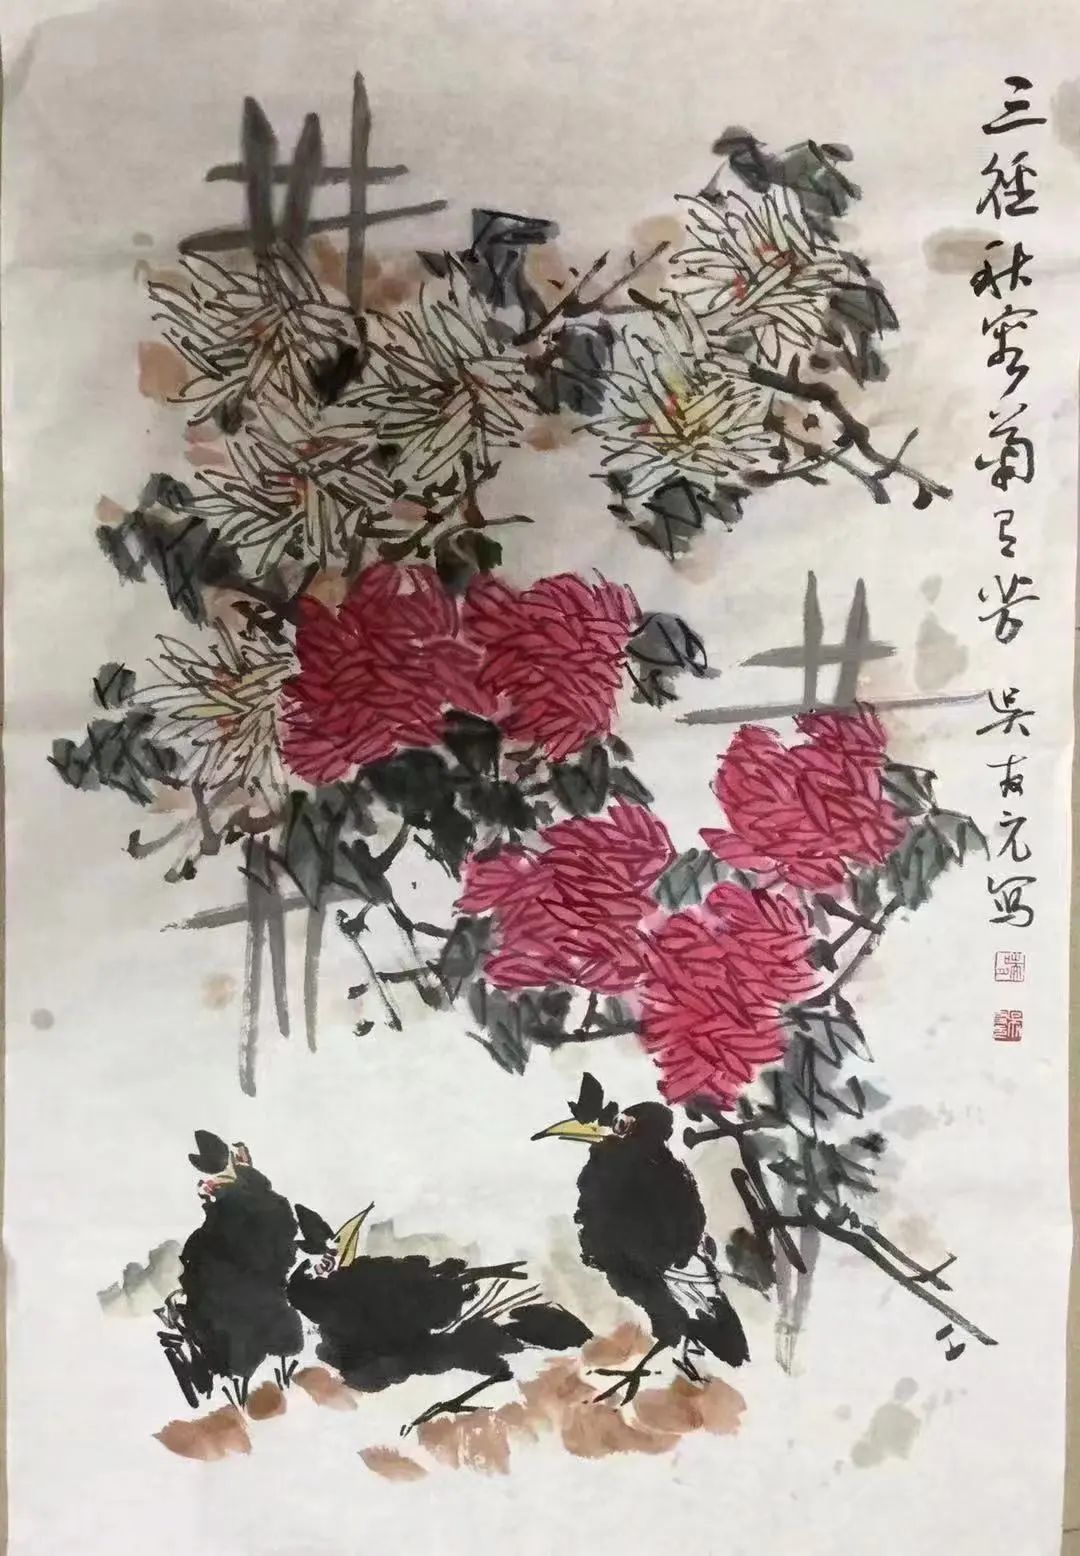 三径秋容菊有芳 吴友元写